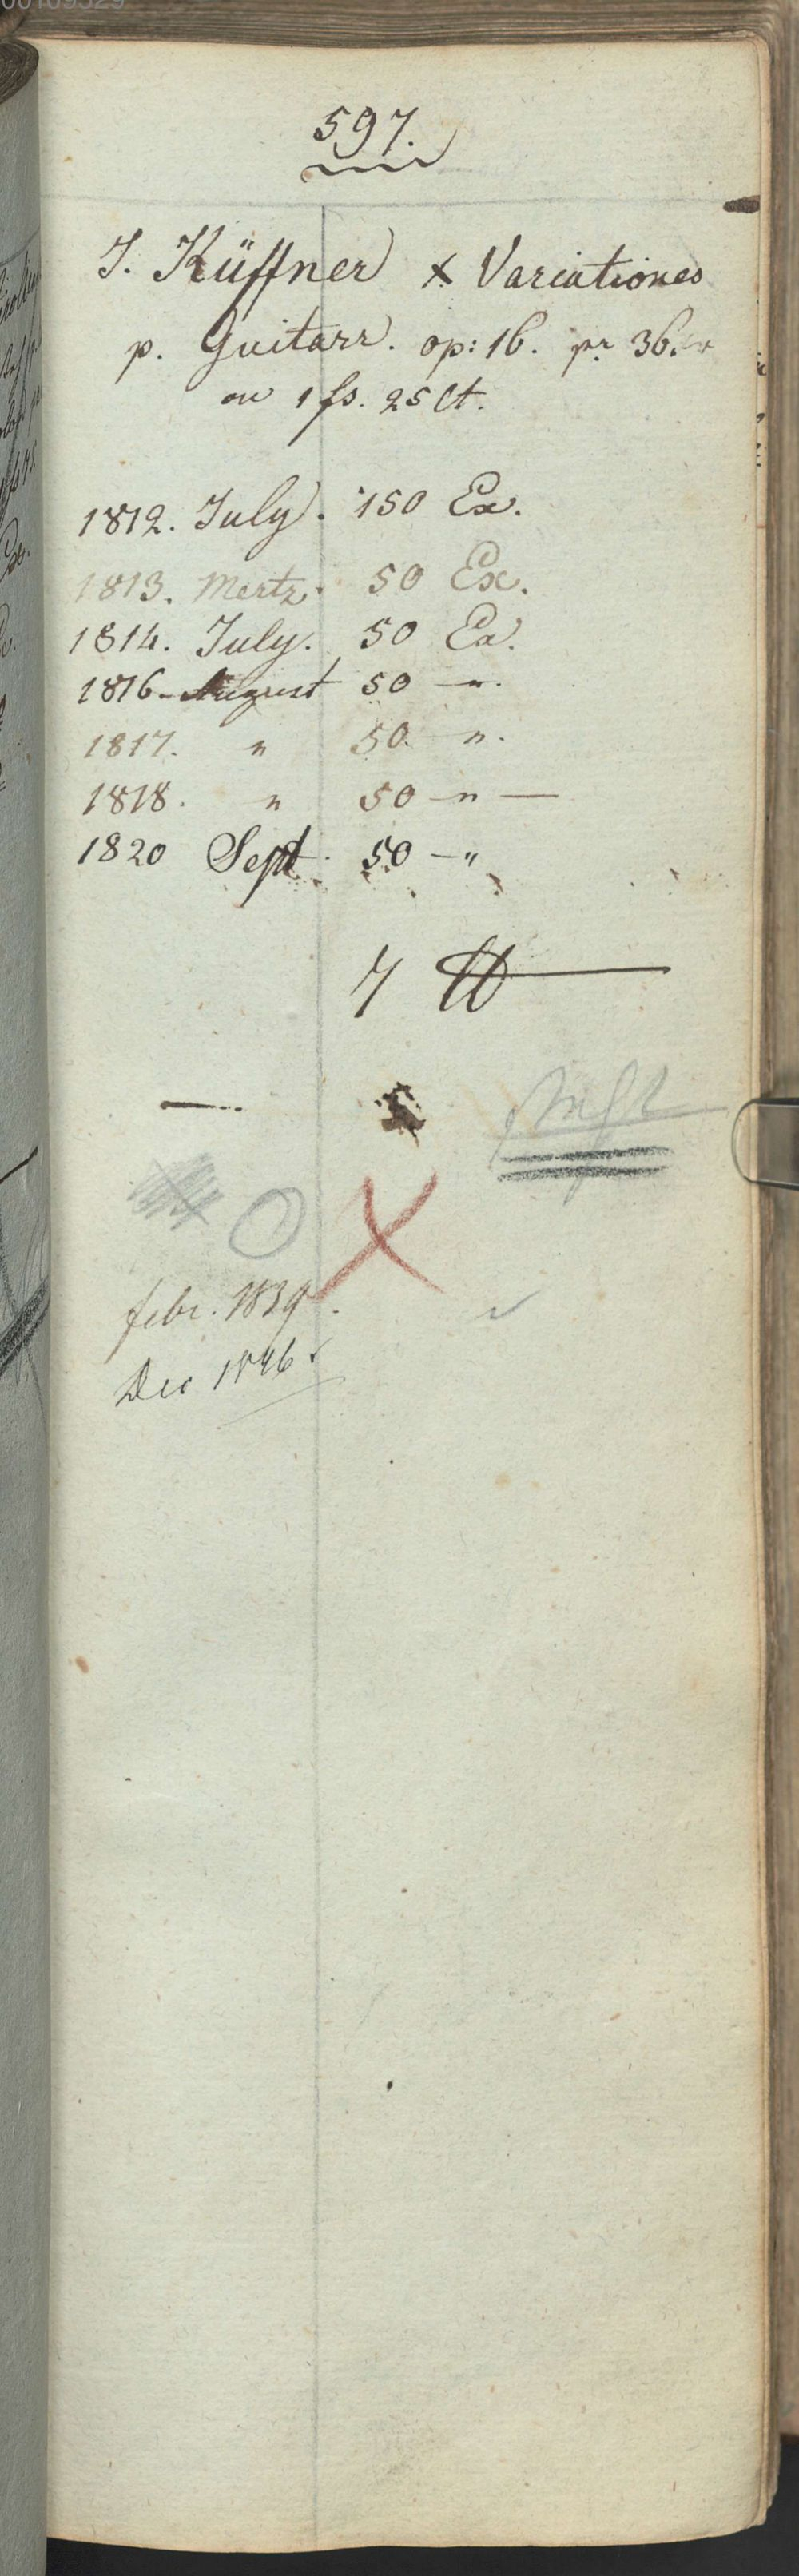 597.
J. Küffner x Variationes
p. Guitarr. op: 16. pr 36. x
ou 1 fs. 25 Ct.
1812. July. 150 Ex.
1813. Mertz. 50 Ex.
1814. July. 50 Ex.
1816 - August 50 — ".
1817. " 50. ".
1818. " 50 — " —
1820 Sept. 50 — "
7 ℔
O X
febr. 1839.
Dec 1846.